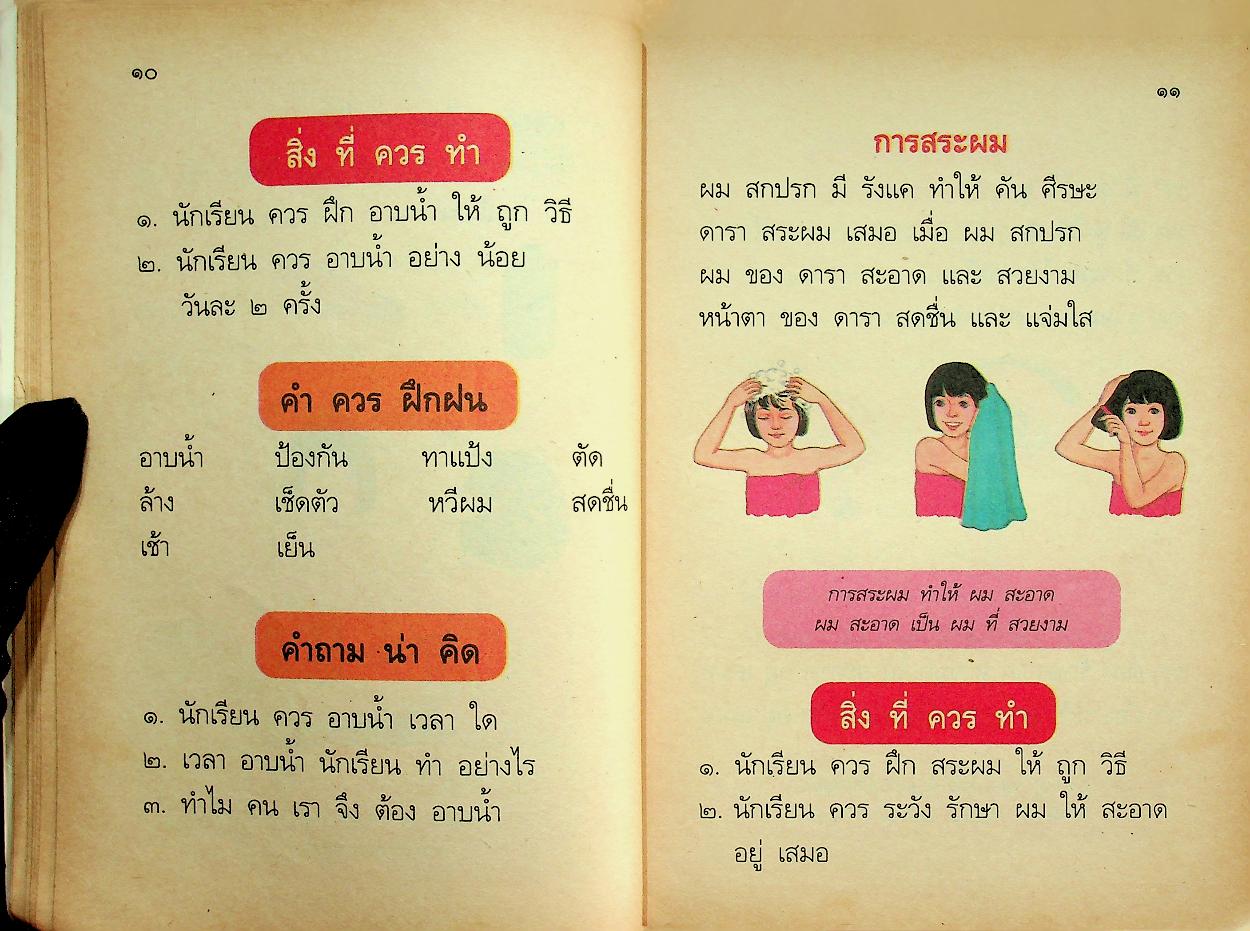 ๑๐
สิ่ง ที่ ควร ทำ
๑. นักเรียน ควร ฝึก อาบน้ำ ให้ ถูก วิธี
๒. นักเรียน ควร อาบน้ำ อย่าง น้อย
วันละ ๒ ครั้ง
คำ ควร ฝึกฝน
อาบน้ำ ป้องกัน ทาแป้ง ตัด
ล้าง เช็ดตัว หวีผม สดชื่น
เช้า เย็น
คำถาม น่า คิด
๑. นักเรียน ควร อาบน้ำ เวลา ใด
๒. เวลา อาบน้ำ นักเรียน ทำ อย่างไร
๓. ทำไม คน เรา จึง ต้อง อาบน้ำ
๑๑
การสระผม
ผม สกปรก มี รังแค ทำให้ คัน ศีรษะ
ดารา สระผม เสมอ เมื่อ ผม สกปรก
ผม ของ ดารา สะอาด และ สวยงาม
หน้าตา ของ ดารา สดชื่น และ แจ่มใส
การสระผม ทำให้ ผม สะอาด
ผม สะอาด เป็น ผม ที่ สวยงาม
สิ่ง ที่ ควร ทำ
๑. นักเรียน ควร ฝึก สระผม ให้ ถูก วิธี
๒. นักเรียน ควร ระวัง รักษา ผม ให้ สะอาด
อยู่ เสมอ